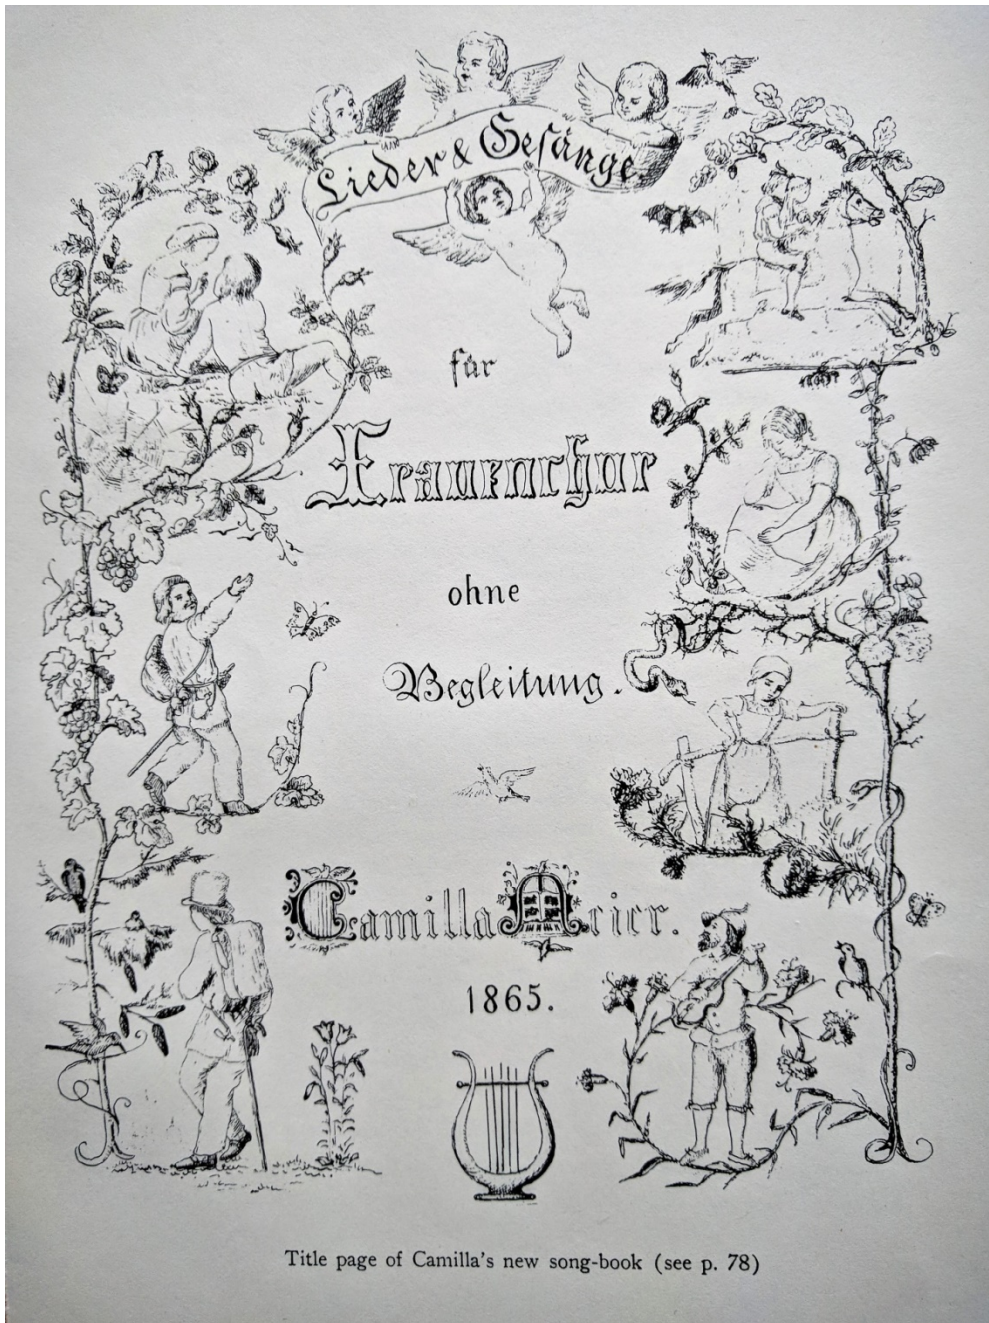 Lieder & Gesänge.
für
Frauenchor
ohne
Begleitung.
Camilla Meier.
1865.
Title page of Camilla's new song-book (see p. 78)